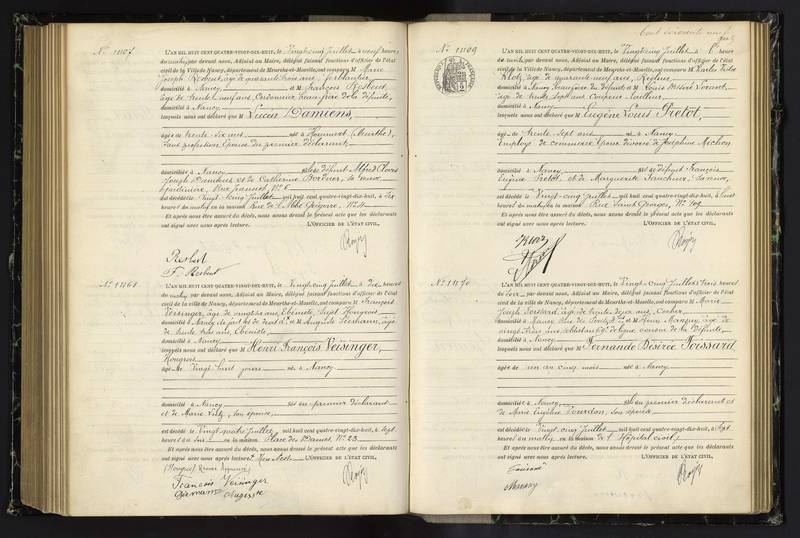 N° 1167
L'AN MIL HUIT CENT QUATRE-VINGT-DIX-HUIT, le Vingt cinq Juillet à neuf heures
du matin, par devant nous, Adjoint au Maire, délégué faisant fonctions d'officier de l'état
civil de la Ville de Nancy, département de Meurthe-et-Moselle, ont comparu M Marie
Joseph Resbeut, âgé de quarante trois ans, ferblantier
domicilié à Nancy et M François Resbeut
âgé de trente neuf ans, Cordonnier, beau frère de la défunte,
domicilié à Nancy
lesquels nous ont déclaré que Lucie Damiens,
âgée de trente six ans née à (Meurthe),
sans profession, épouse du premier déclarant
domiciliée à Nancy fille de défunt Alfred
Joseph Damiens et de Catherine sa veuve
jardinière, Rue Jeannot, N° 6
est décédée le Vingt cinq Juillet mil huit cent quatre-vingt-dix-huit, à Six
heures du matin en la maison Rue de l'Abbé Grégoire, N° 4
Et après nous être assuré du décès, avons dressé le présent acte que les déclarants
ont signé avec nous après lecture. L'OFFICIER DE L'ÉTAT CIVIL,
Resbeut
F. Resbeut
N° 1168
L'AN MIL HUIT CENT QUATRE-VINGT-DIX-HUIT, le Vingt cinq Juillet à Dix heures
du matin, par devant nous, Adjoint au Maire, délégué faisant fonctions d'officier de l'état
civil de la ville de Nancy, département de Meurthe-et-Moselle, ont comparu M François
Veisinger, âgé de vingt six ans, Ebéniste, Sujet Hongrois
domicilié à Nancy et M Auguste âgé
de trente trois ans, Ebéniste
domicilié à Nancy
lesquels nous ont déclaré que Henri François Veisinger,
Hongrois
âgé de Vingt huit jours né à Nancy
domicilié à Nancy fils du premier déclarant
et de Marie son épouse
est décédé le Vingt quatre Juillet mil huit cent quatre-vingt-dix-huit, à sept
heures du soir en la maison Place des Dames N° 23
Et après nous être assuré du décès, avons dressé le présent acte que les déclarants
ont signé avec nous après lecture. L'OFFICIER DE L'ÉTAT CIVIL,
François Veisinger
Auguste
Cent soixante neuf
N° 1169
L'AN MIL HUIT CENT QUATRE-VINGT-DIX-HUIT, le Vingt cinq Juillet à heures
par devant nous, Adjoint au Maire, délégué faisant fonctions d'officier de l'état
civil de la Ville de Nancy, département de Meurthe-et-Moselle, ont comparu M Charles
Klotz, âgé de quarante neuf ans,
domicilié à Nancy beau frère du défunt et M Louis
âgé de trente sept ans, Coupeur tailleur
domicilié à Nancy
lesquels nous ont déclaré que Eugène Louis Pretot,
âgé de trente sept ans né à Nancy
Employé de commerce, époux divorcé de Joséphine Michon
domicilié à Nancy fils de défunt François
Eugène Pretot, et de Marguerite sa veuve
est décédé le Vingt cinq Juillet mil huit cent quatre-vingt-dix-huit, à huit
heures du matin en la maison Rue Saint Georges, N° 109
Et après nous être assuré du décès, avons dressé le présent acte que les déclarants
ont signé avec nous après lecture. L'OFFICIER DE L'ÉTAT CIVIL,
N° 1170
L'AN MIL HUIT CENT QUATRE-VINGT-DIX-HUIT, le Vingt cinq Juillet à trois heures
du soir, par devant nous, Adjoint au Maire, délégué faisant fonctions d'officier de l'état
civil de la ville de Nancy, département de Meurthe-et-Moselle, ont comparu M Marie
Joseph Foissard, âgé de trente deux ans, Cocher
domicilié à Nancy et M Henri âgé de
vingt trois ans, cousin de la Défunte,
domicilié à Nancy
lesquels nous ont déclaré que Fernande Désirée Foissard,
âgée de un an cinq mois née à Nancy
domiciliée à Nancy fille du premier déclarant et
de Marie Eugénie Bourdon, son épouse
est décédée le Vingt cinq Juillet mil huit cent quatre-vingt-dix-huit, à sept
heures du matin en la maison de l'Hôpital civil
Et après nous être assuré du décès, avons dressé le présent acte que les déclarants
ont signé avec nous après lecture. L'OFFICIER DE L'ÉTAT CIVIL,
Foissard